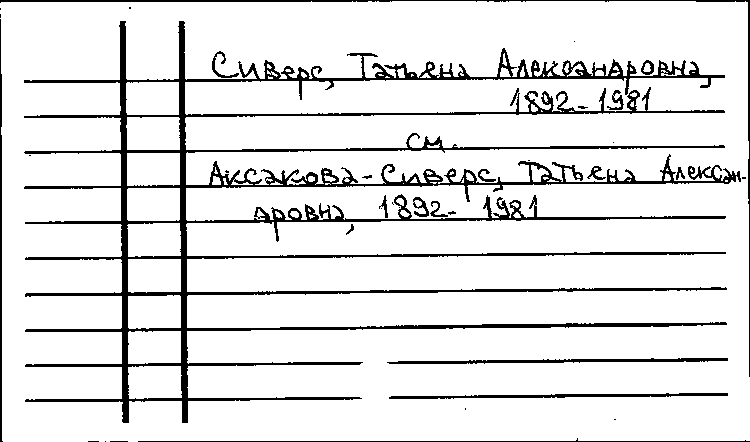 Сиверс, Татьяна Александровна,
1892-1981
см.
Аксакова-Сиверс, Татьяна Алексан-
дровна, 1892-1981